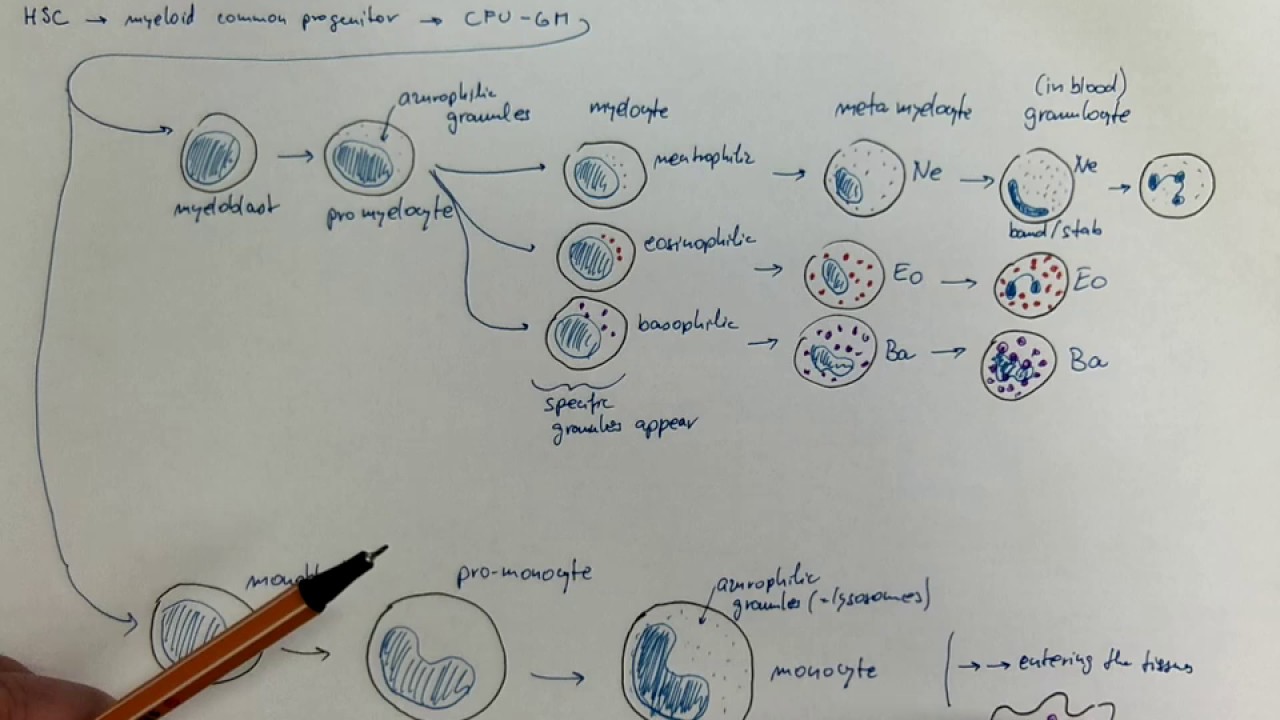 HSC → myeloid common progenitor → CFU-GM
azurophilic
granules
myelocyte
metamyelocyte
(in blood)
granulocyte
myeloblast
promyelocyte
neutrophilic
Ne
Ne
band/stab
eosinophilic
Eo
Eo
basophilic
Ba
Ba
specific
granules appear
pro-monocyte
azurophilic
granules (~lysosomes)
monocyte
→ → entering the tissues